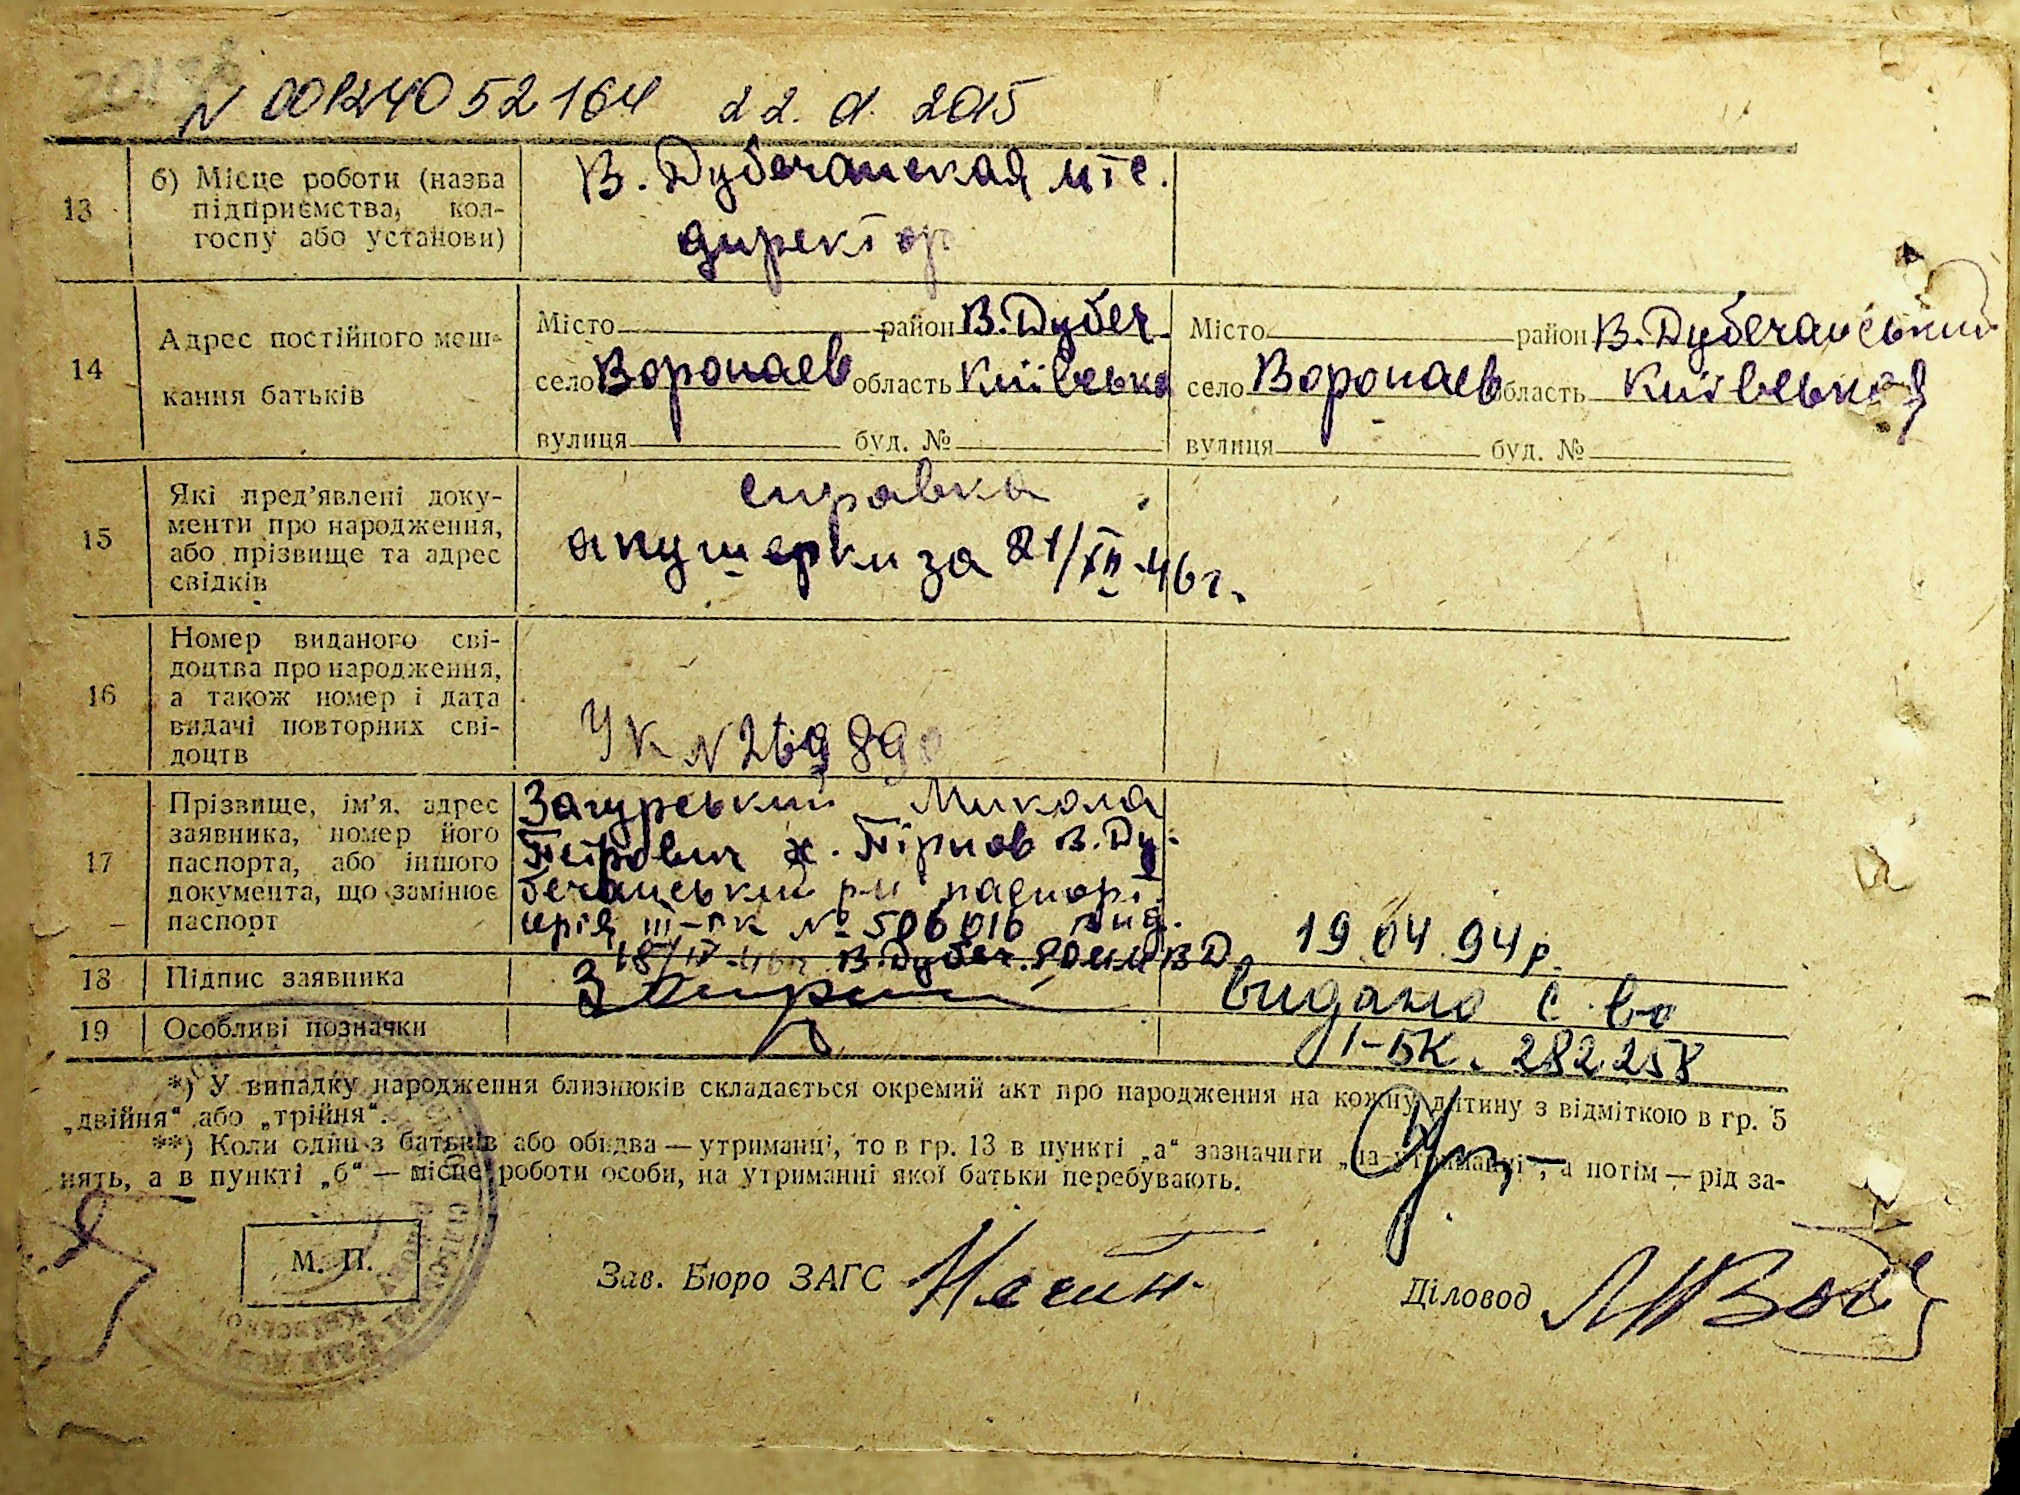 N 00124052164 22. 01. 2015
13
б) Місце роботи (назва
підприємства, кол-
госпу або установи)
В. Дубечанская мтс.
директор
14
Адрес постійного меш-
кання батьків
Місто район В. Дубеч
село Воропаев область Київська
вулиця буд. №
Місто район В. Дубечанський
село Воропаев область Київськая
вулиця буд. №
15
Які пред'явлені доку-
менти про народження,
або прізвище та адрес
свідків
справка
акушерки за 21/XII-46 г.
16
Номер виданого сві-
доцтва про народження,
а також номер і дата
видачі повторних сві-
доцтв
УК N 269890
17
Прізвище, ім'я, адрес
заявника, номер його
паспорта, або іншого
документа, що замінює
паспорт
Загурський Микола
Петрович х. Пірнов В. Ду-
бечанський р-н паспорт
серія III-РК № 506016 вид.
18/IV-46 г. В. Дубеч. РО МВД
18
Підпис заявника
19.04.94 р.
видано с-во
19
Особливі позначки
I-БК. 282258
*) У випадку народження близнюків складається окремий акт про народження на кожну дитину з відміткою в гр. 5
„двійня“ або „трійня“.
**) Коли один з батьків або обидва — утриманці, то в гр. 13 в пункті „а“ зазначити „на утриманні“, а потім — рід за-
нять, а в пункті „б“ — місце роботи особи, на утриманні якої батьки перебувають.
М. П.
Зав. Бюро ЗАГС
Діловод